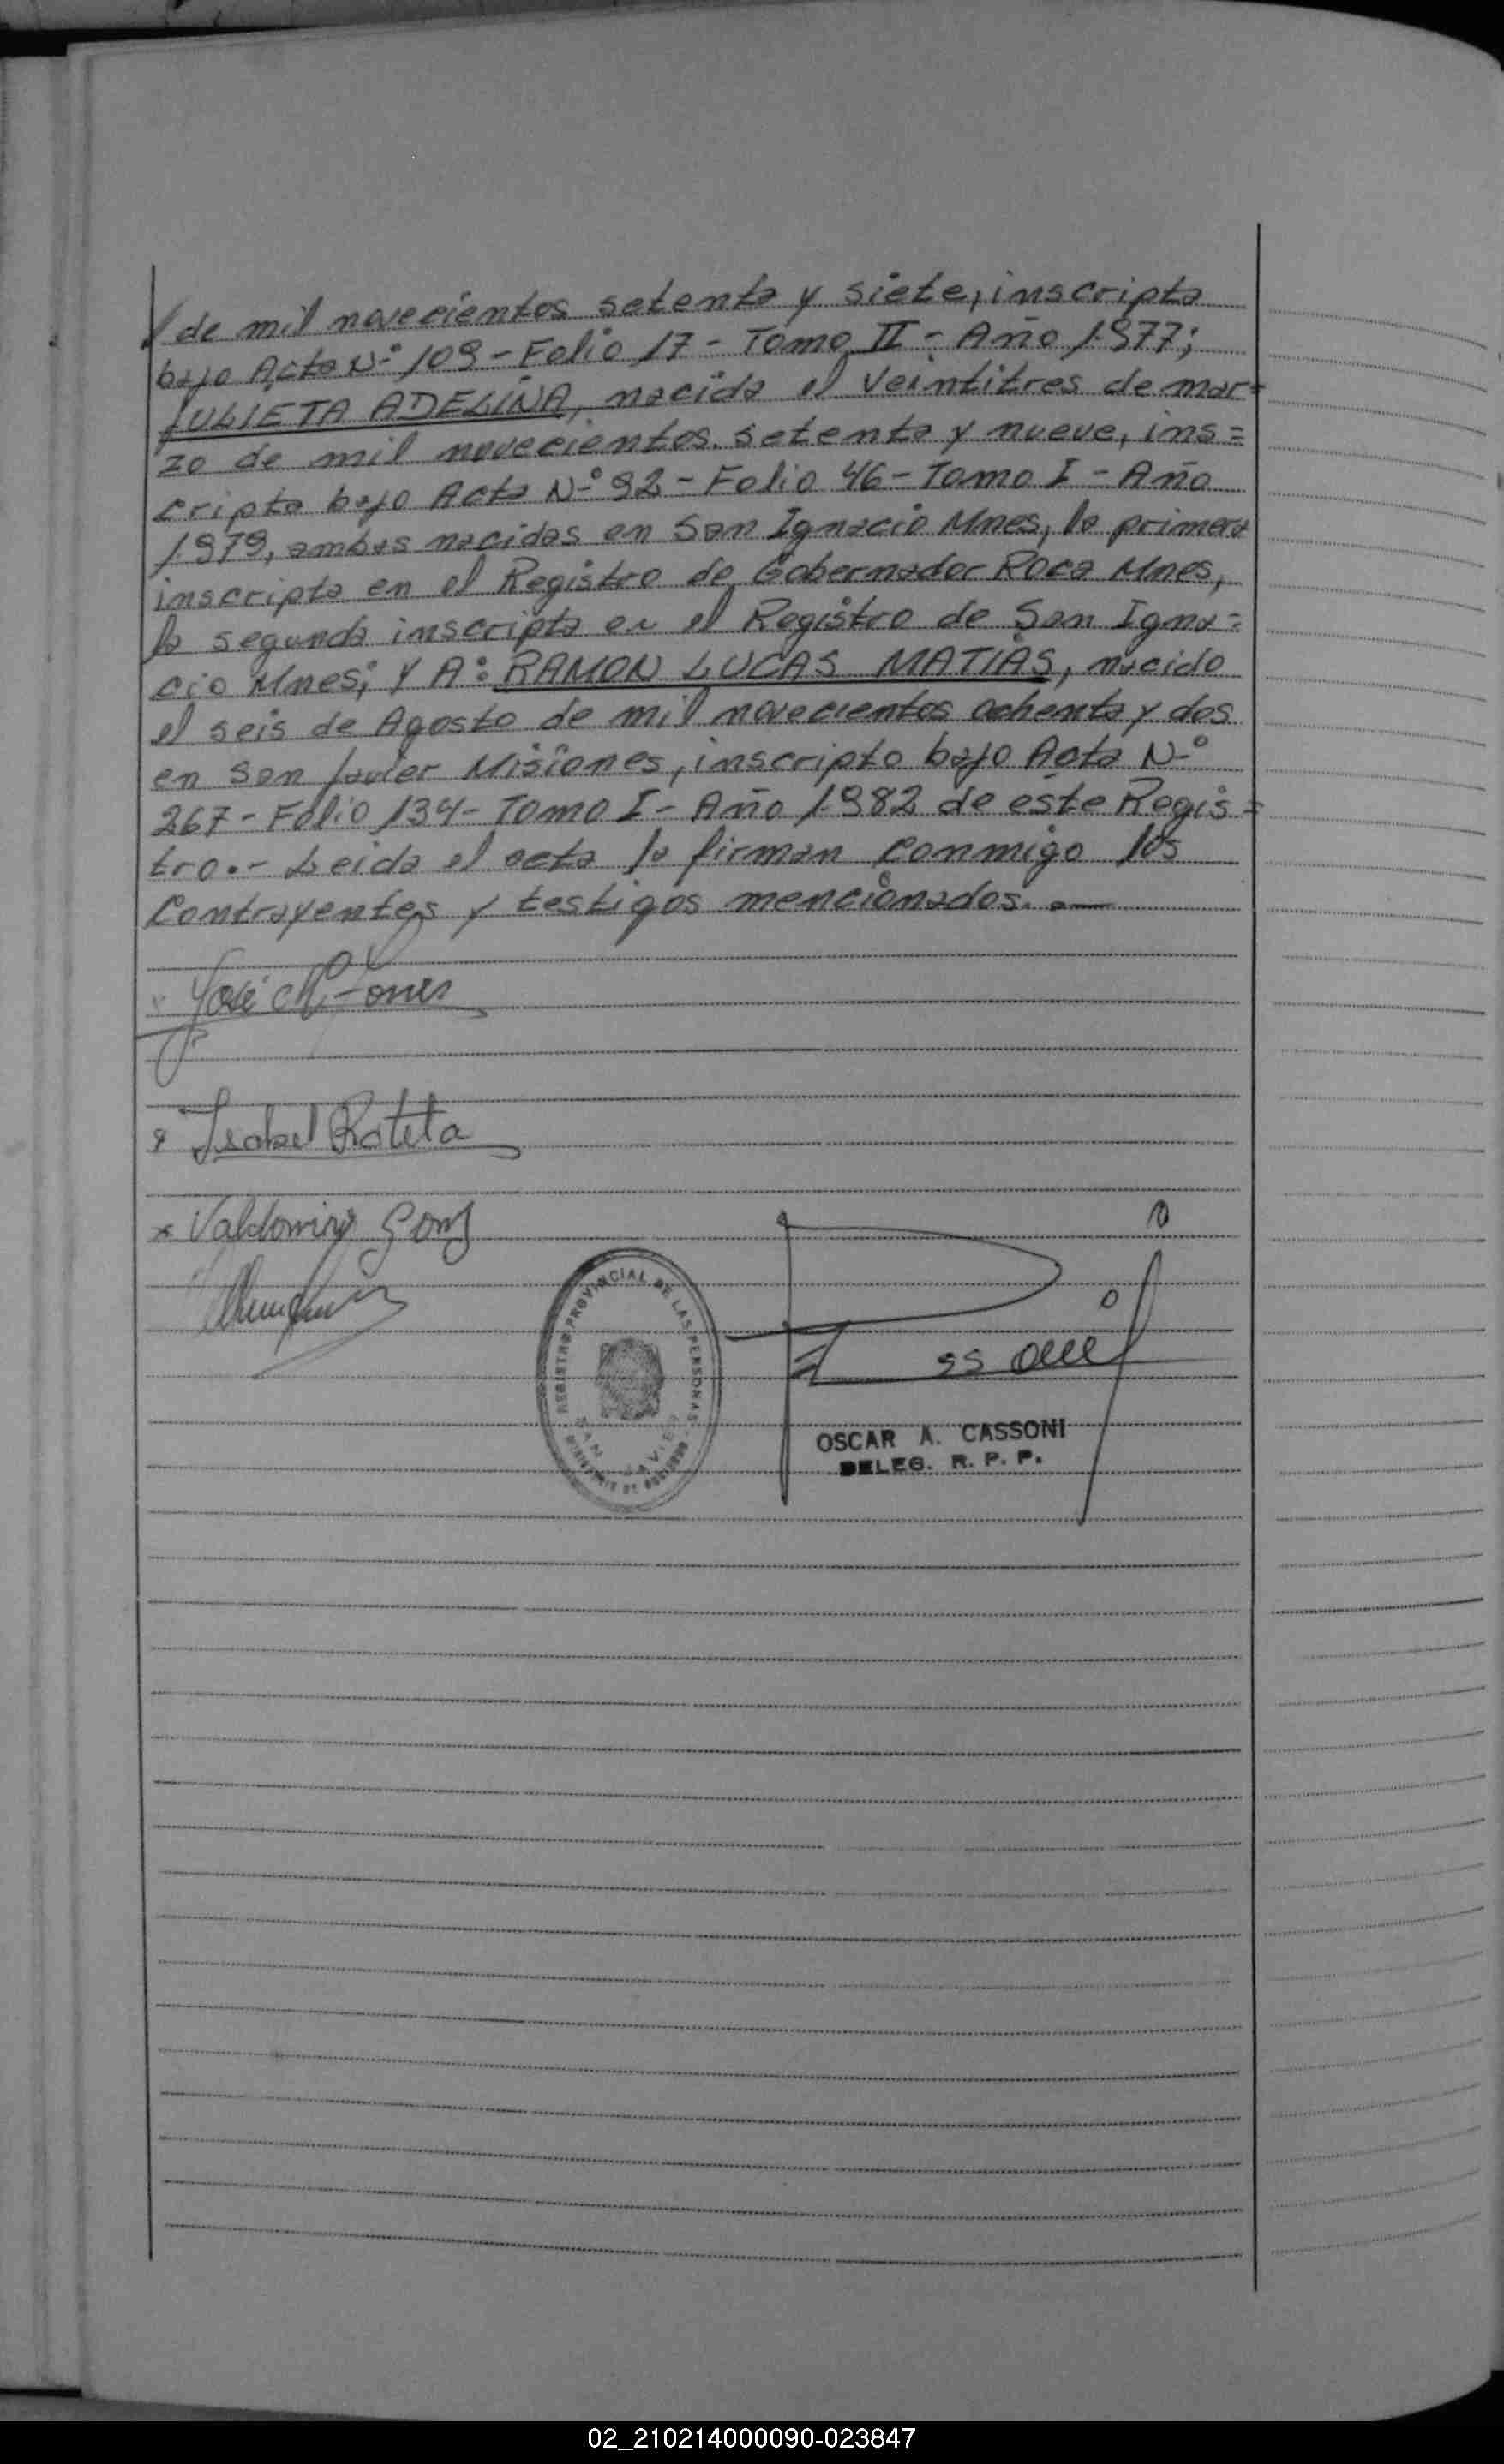 de mil novecientos setenta y siete, inscripta
bajo Acta N° 109 - Folio 17 - Tomo II - Año 1.977;
JULIETA ADELINA, nacida el veintitres de mar=
zo de mil novecientos setenta y nueve, ins=
cripta bajo Acta N° 92 - Folio 46 - Tomo I - Año
1.979, ambas nacidas en San Ignacio Mnes, la primera
inscripta en el Registro de Gobernador Roca Mnes,
la segunda inscripta en el Registro de San Igna=
cio Mnes; y A: RAMON LUCAS MATIAS, nacido
el seis de Agosto de mil novecientos ochenta y dos
en San Javier Misiones, inscripto bajo Acta N°
267 - Folio 134 - Tomo I - Año 1.982 de este Regis=
tro.- Leida el acta la firman conmigo los
Contrayentes y testigos mencionados. -
José
Isabel
Valdomiro
REGISTRO PROVINCIAL DE LAS PERSONAS
SAN JAVIER
MINISTERIO DE GOBIERNO
OSCAR A. CASSONI
DELEG. R. P. P.
02_210214000090-023847